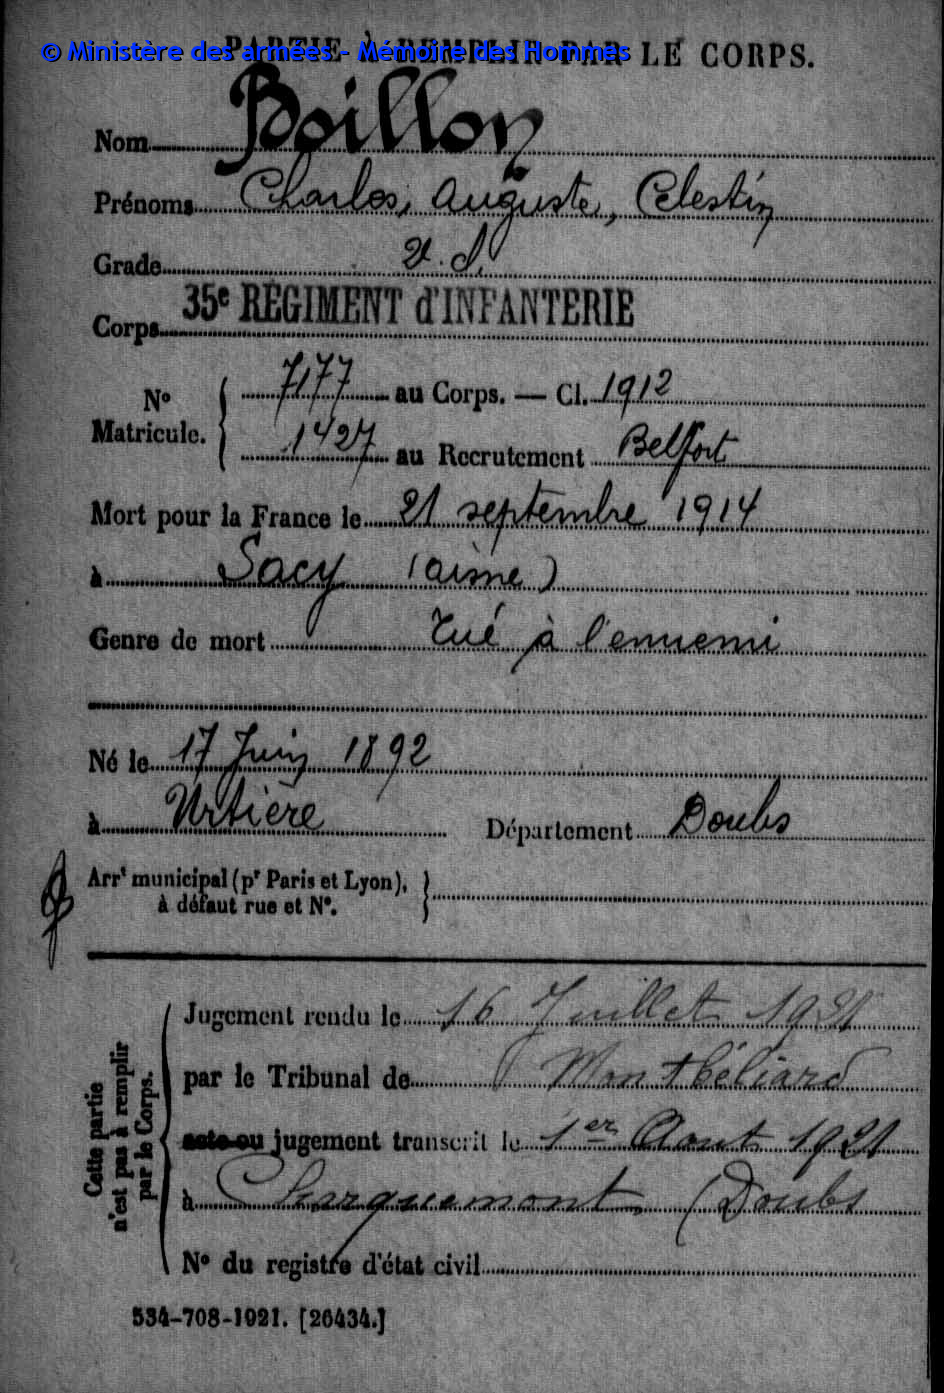 © Ministère des armées - Mémoire des Hommes
PARTIE À REMPLIR PAR LE CORPS.
Nom Boillon
Prénoms Charles, Auguste, Célestin
Grade 2e cl.
Corps 35e RÉGIMENT d'INFANTERIE
No Matricule. { 7177 au Corps. — Cl. 1912
1427 au Recrutement Belfort
Mort pour la France le 21 septembre 1914
à Sacy (aisne)
Genre de mort Tué à l'ennemi
Né le 17 Juin 1892
à Urtière Département Doubs
Arrt municipal (pr Paris et Lyon),
à défaut rue et No. }
Cette partie n'est pas à remplir par le Corps. {
Jugement rendu le 16 Juillet 1921
par le Tribunal de Montbéliard
acte ou jugement transcrit le 1er Aout 1921
à Charquemont (Doubs
No du registre d'état civil
534-708-1921. [26434.]